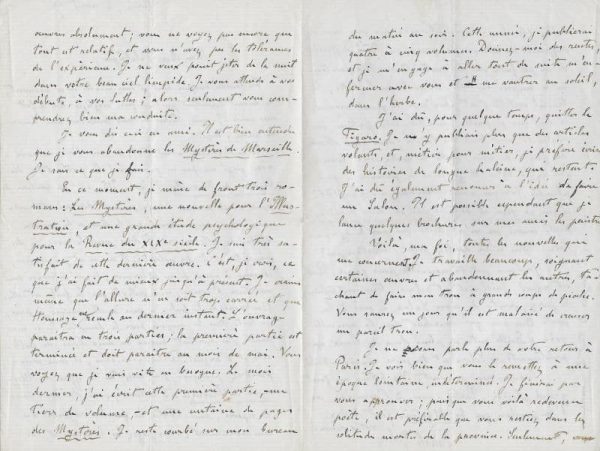 œuvres absolument ; vous ne voyez pas encore que
tout est relatif, et vous n'avez pas les tolérances
de l'expérience. Je ne veux point jeter de la nuit
dans votre beau ciel limpide. Je vous attends à vos
débuts, à vos luttes ; alors seulement vous com-
prendrez bien ma conduite.
Je vous dis ceci en ami. Il est bien entendu
que je vous abandonne les Mystères de Marseille.
Je sais ce que je fais.
En ce moment, je mène de front trois ro-
mans : Les Mystères, une nouvelle pour l'Illus-
tration, et une grande étude psychologique
pour la Revue du XIXe siècle. Je suis très sa-
tisfait de cette dernière œuvre. C'est, je crois, ce
que j'ai fait de mieux jusqu'à présent. Je crains
même que l'allure n'en soit trop carrée et que
Houssaye ne recule au dernier instant. L'ouvrage
paraîtra en trois parties ; la première partie est
terminée et doit paraître au mois de mai. Vous
voyez que je vais vite en besogne. Le mois
dernier, j'ai écrit cette première partie, – un
tiers du volume, – et une centaine de pages
des Mystères. Je reste courbé sur mon bureau
du matin au soir. Cette année, je publierai
quatre à cinq volumes. Donnez-moi des rentes,
et je m'engage à aller tout de suite m'en-
fermer avec vous et me vautrer au soleil,
dans l'herbe.
J'ai dû, pour quelque temps, quitter le
Figaro. Je n'y publiais plus que des articles
volants et, métier pour métier, je préfère écrire
des histoires de longue haleine, qui restent.
J'ai dû également renoncer à l'idée de faire
un Salon. Il est possible cependant que je
lance quelque brochure sur mes amis les peintres.
Voilà, ma foi, toutes les nouvelles qui
me concernent. Je travaille beaucoup, soignant
certaines œuvres et abandonnant les autres, tâ-
chant de faire mon trou à grands coups de pioche.
Vous saurez un jour qu'il est malaisé de creuser
un pareil trou.
Je ne vous parle plus de votre retour à
Paris. Je vois bien que vous le remettez à une
époque lointaine indéterminée. Je finirai par
vous approuver ; puisque vous voilà redevenu
poète, il est préférable que vous restiez dans les
solitudes mortes de la province. Seulement,